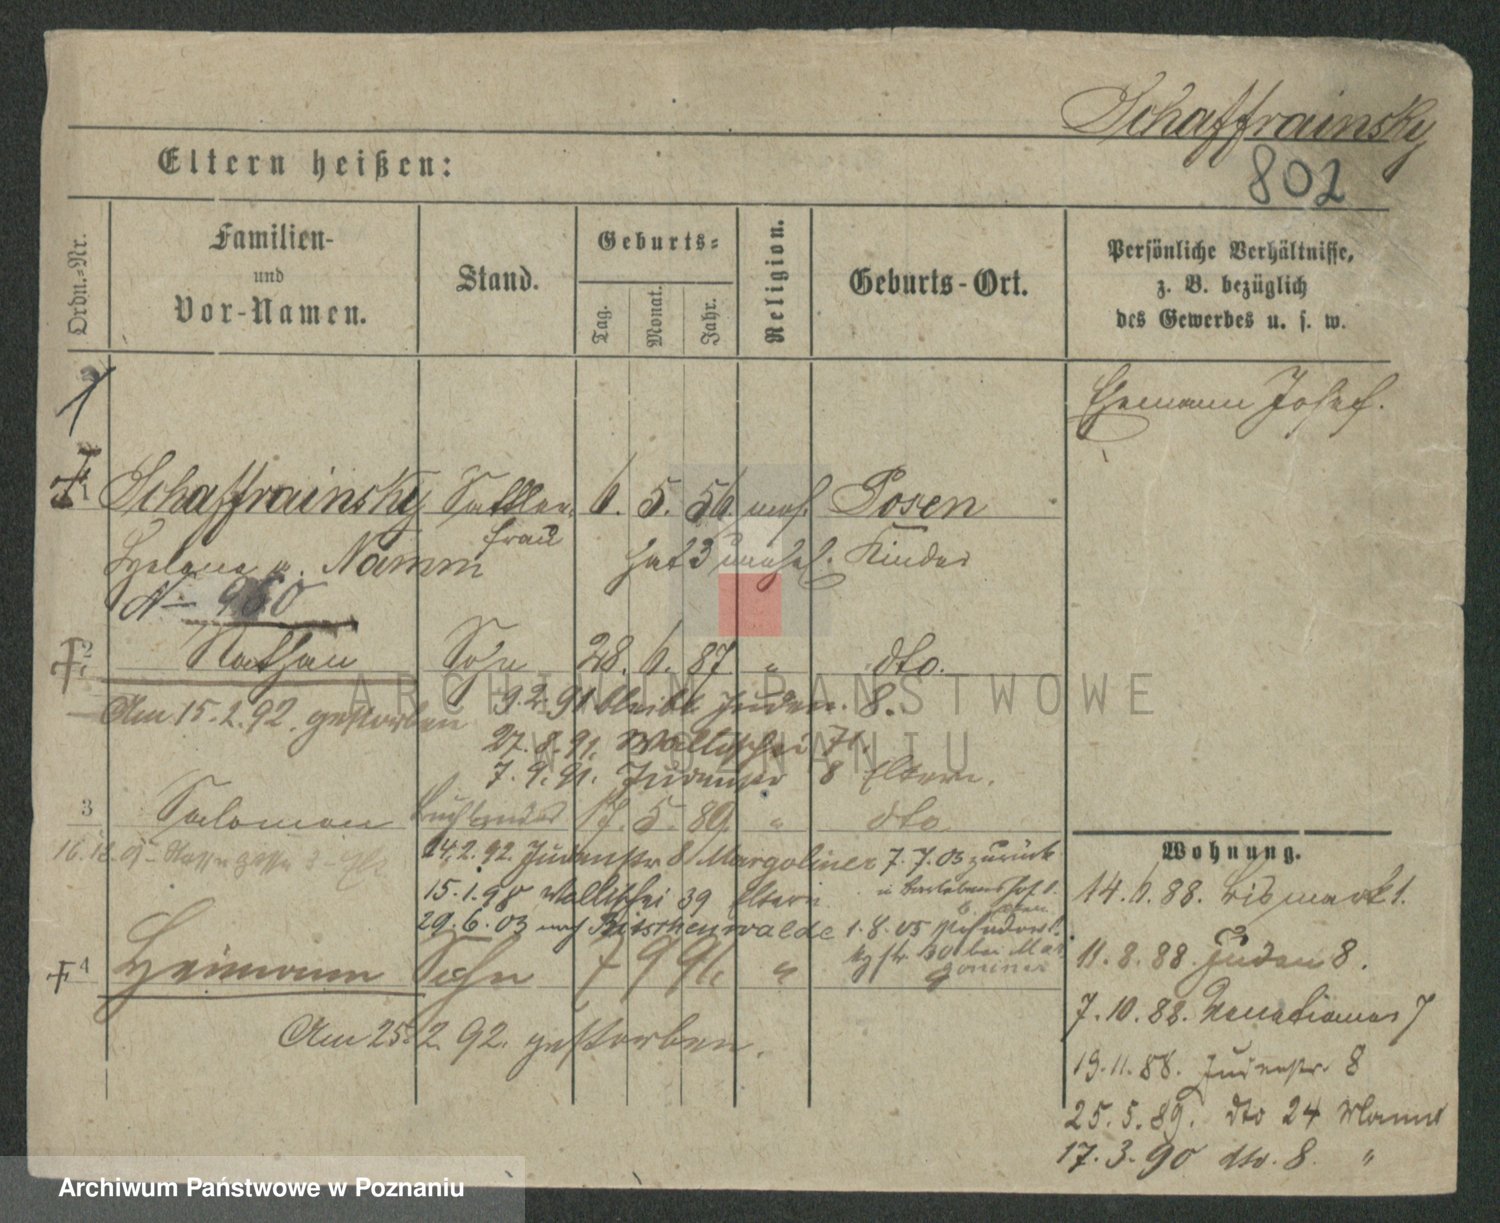 Schaffrainsky
802
Eltern heißen:
Ordn.-Nr.
Familien-
und
Vor-Namen.
Stand.
Geburts-
Tag.
Monat.
Jahr.
Religion.
Geburts-Ort.
Persönliche Verhältnisse,
z. B. bezüglich
des Gewerbes u. s. w.
1
Ehemann Josef.
1 Schaffrainsky Sattler- 6. 5. 56. mos. Posen
frau
Helene g. Namm hat 3 unehel. Kinder
2 Nathan Sohn 28. 6. 87. " dto.
9.2.91. bleibt Juden. 8.
Am 15.2.92. gestorben
27.8.91. Wallischei 71.
7.9.91. Judenstr 8 Eltern.
3 Salomon 17. 5. 89. " dto
14.2.92. Judenstr 8 Margoliner 7.7.03 zurück
15.1.98 Wallischei 39 Eltern
29.6.03 nach Ritschenwalde 1.8.05
30 bei Mar
goniner
4 Heimann Sohn 7 9 91. "
Am 25.2.92. gestorben.
Wohnung.
14.6.88. Bismark 1.
11.8.88. Juden 8.
7.10.88. Venetianer 7
19.11.88. Judenstr. 8
25.5.89. dto 24 Mann
17.3.90 dto. 8. "
ARCHIWUM PAŃSTWOWE
W POZNANIU
Archiwum Państwowe w Poznaniu